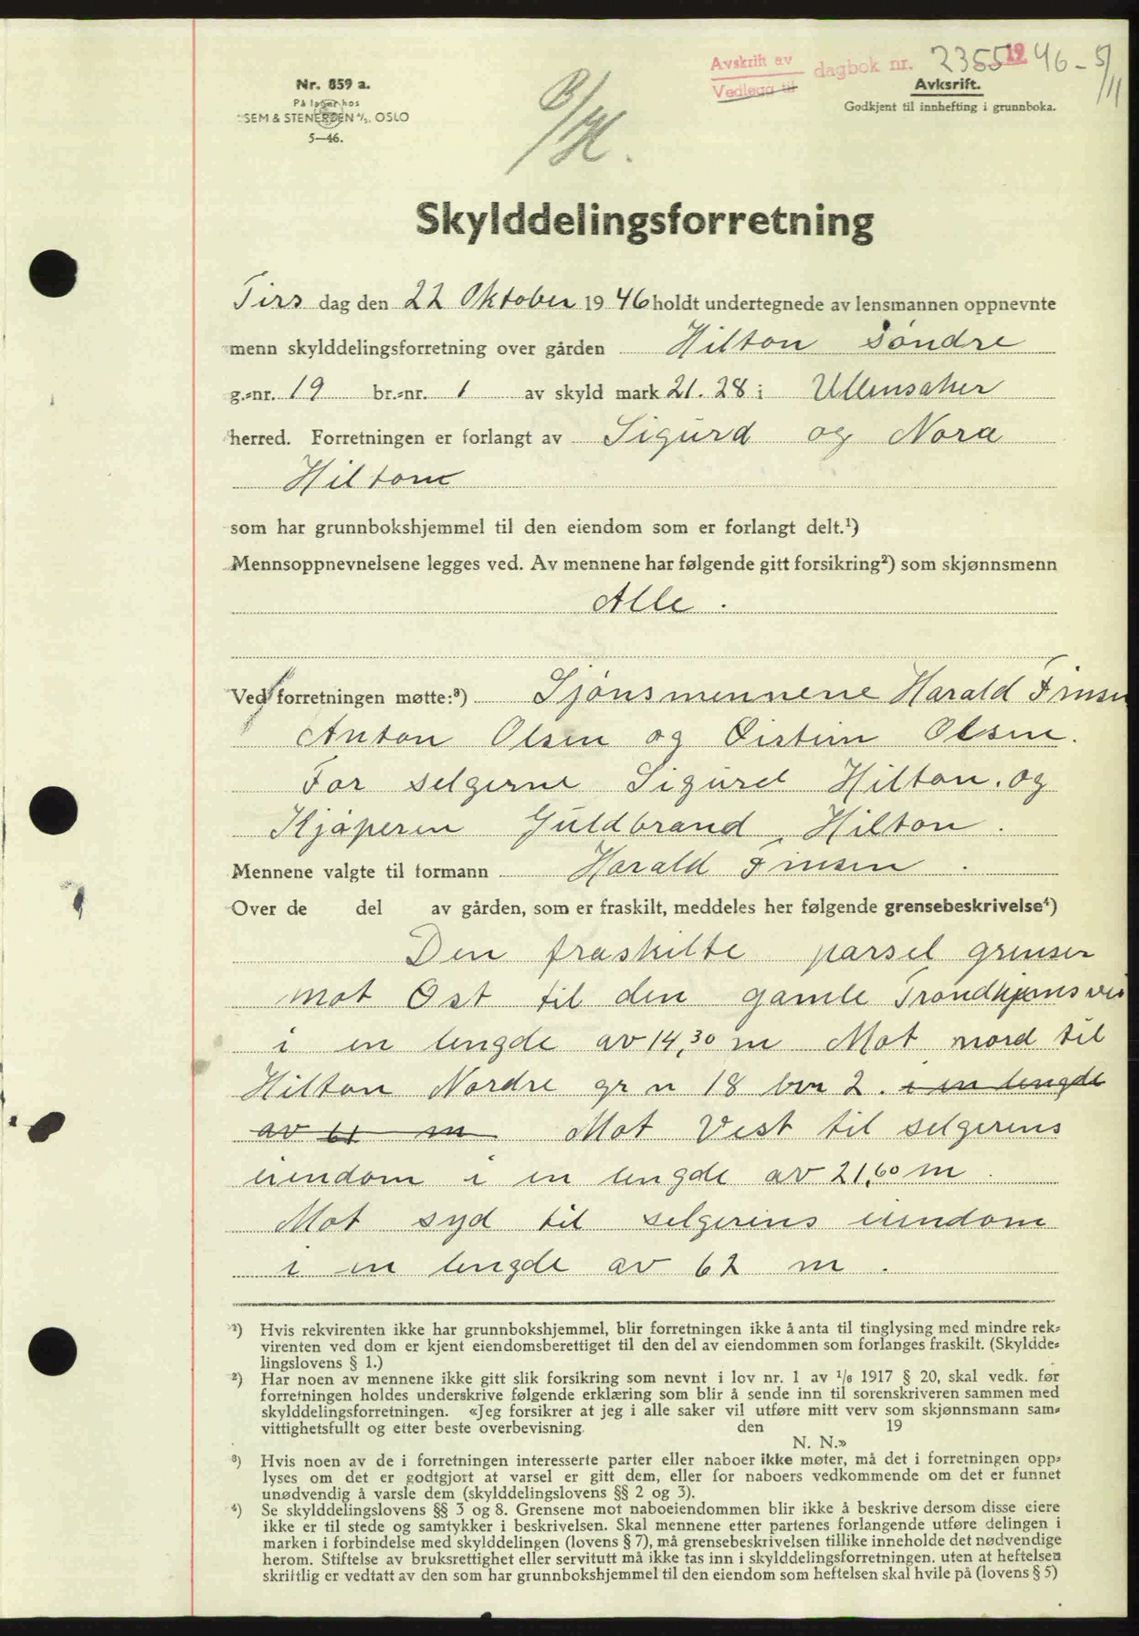 Avskrift av
Vedlegg til
dagbok nr. 2355 1946 - 5/11
Nr. 859 a.
På lager hos
SEM & STENERSEN A/S. OSLO
5—46.
Avksrift.
Godkjent til innhefting i grunnboka.
Skylddelingsforretning
Tirs dag den 22 Oktober 19 46 holdt undertegnede av lensmannen oppnevnte
menn skylddelingsforretning over gården Hilton Søndre
g.-nr. 19 br.-nr. 1 av skyld mark 21.28 i Ullensaker
herred. Forretningen er forlangt av Sigurd og Nora
Hilton
som har grunnbokshjemmel til den eiendom som er forlangt delt.¹)
Mennsoppnevnelsene legges ved. Av mennene har følgende gitt forsikring²) som skjønnsmenn
Alle.
Ved forretningen møtte:³) Sjønsmennene Harald Finsen
Anton Olsen og Øistein Olsen.
For selgerne Sigurd Hilton. og
Kjøperen Guldbrand Hilton.
Mennene valgte til formann Harald Finsen.
Over de del av gården, som er fraskilt, meddeles her følgende grensebeskrivelse⁴)
Den fraskilte parsel grenser
mot Øst til den gamle Trondhjemsvei
i en lengde av 14,30 m Mot nord til
Hilton Nordre gr n 18 brn 2. i en lengde
av 61 m Mot Vest til selgerens
eiendom i en lengde av 21,60 m.
Mot syd til selgerens eiendom
i en lengde av 62 m.
¹) Hvis rekvirenten ikke har grunnbokshjemmel, blir forretningen ikke å anta til tinglysing med mindre rek-
virenten ved dom er kjent eiendomsberettiget til den del av eiendommen som forlanges fraskilt. (Skyldde-
lingslovens § 1.)
²) Har noen av mennene ikke gitt slik forsikring som nevnt i lov nr. 1 av 1/6 1917 § 20, skal vedk. før
forretningen holdes underskrive følgende erklæring som blir å sende inn til sorenskriveren sammen med
skylddelingsforretningen. «Jeg forsikrer at jeg i alle saker vil utføre mitt verv som skjønnsmann sam-
vittighetsfullt og etter beste overbevisning. den 19
N. N.»
³) Hvis noen av de i forretningen interesserte parter eller naboer ikke møter, må det i forretningen opp-
lyses om det er godtgjort at varsel er gitt dem, eller for naboers vedkommende om det er funnet
unødvendig å varsle dem (skylddelingslovens §§ 2 og 3).
⁴) Se skylddelingslovens §§ 3 og 8. Grensene mot naboeiendommen blir ikke å beskrive dersom disse eiere
ikke er til stede og samtykker i beskrivelsen. Skal mennene etter partenes forlangende utføre delingen i
marken i forbindelse med skylddelingen (lovens § 7), må grensebeskrivelsen tillike inneholde det nødvendige
herom. Stiftelse av bruksrettighet eller servitutt må ikke tas inn i skylddelingsforretningen, uten at heftelsen
skriftlig er vedtatt av den som har grunnbokshjemmel til den eiendom som heftelsen skal hvile på (lovens § 5)